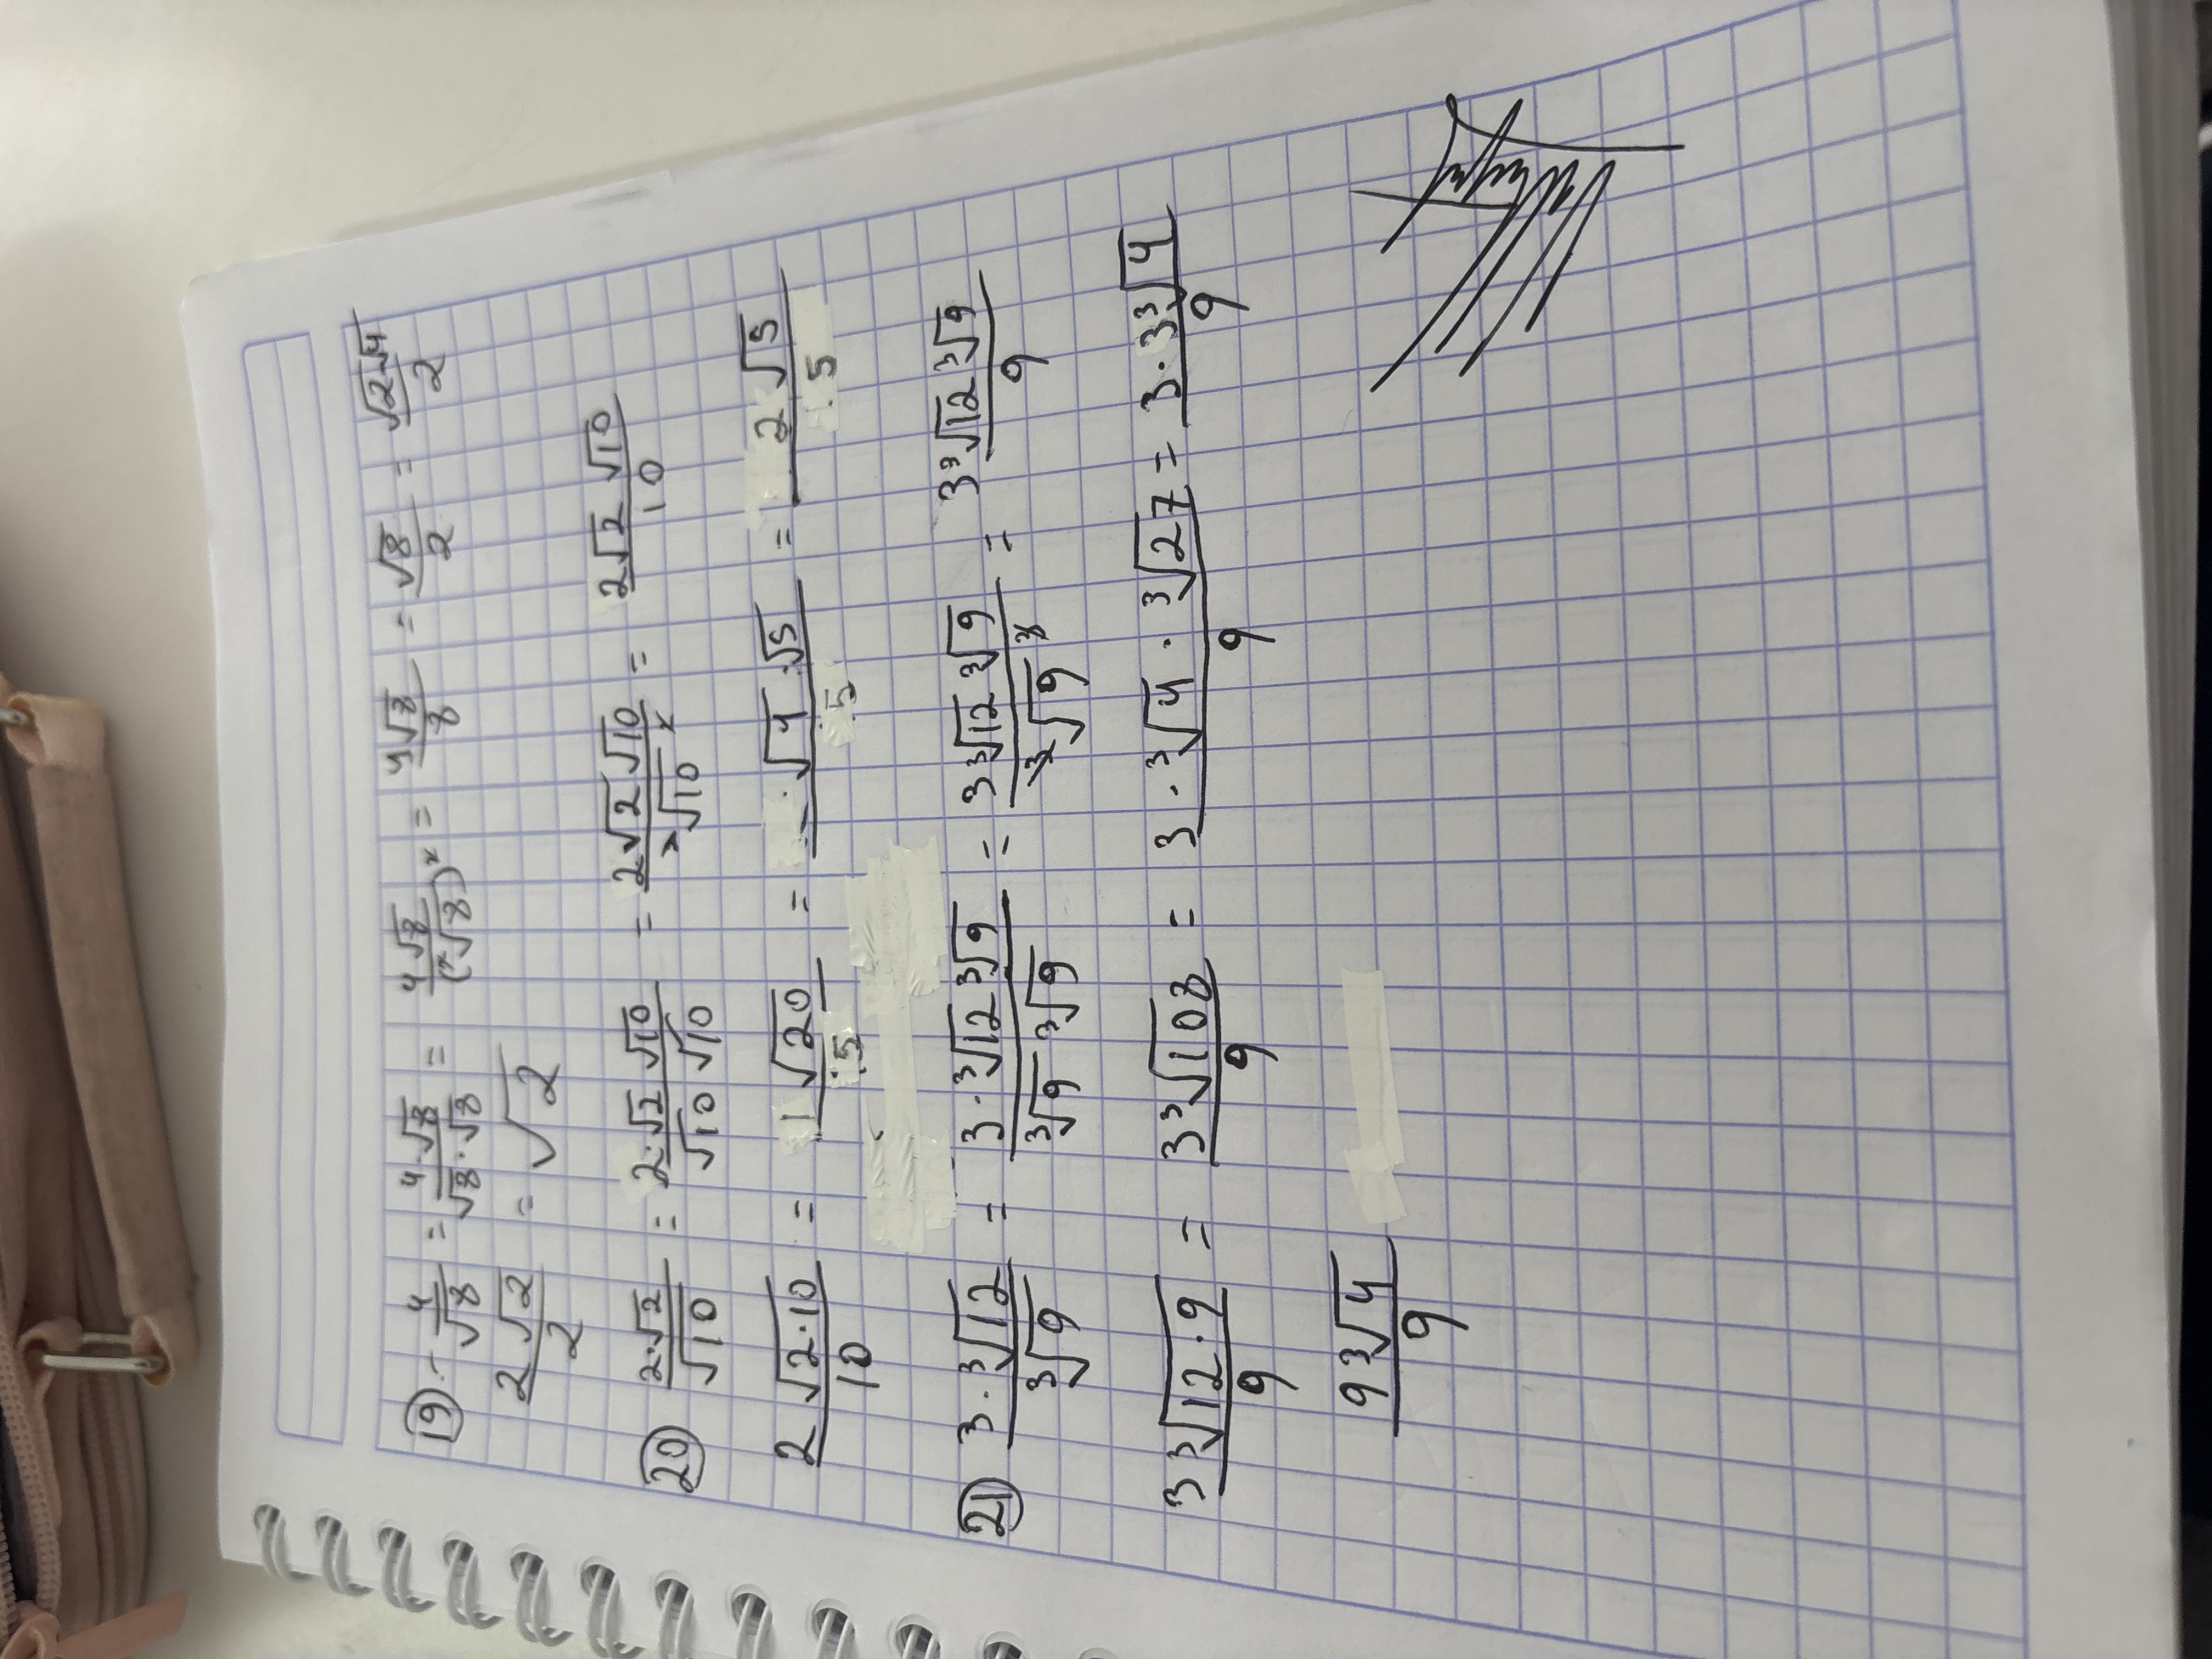 19.- 4/√8 = 4·√8/√8·√8 = 4√8/(²√8)² = 4√8/8 = √8/2 = √2·√4/2
2√2/2 = √2
20 2·√2/√10 = 2·√2 √10/√10 √10 = 2√2 √10/²√10² = 2√2 √10/10
2√2·10/10 = 1√20/5 = ·√4·√5/5 = 2√5/5
21 3·³√12/³√9 = 3·³√12 ³√9/³√9 ³√9 = 3³√12 ³√9/³√9³ = 3³√12 ³√9/9
3³√12·9/9 = 3³√108/9 = 3·³√4·³√27/9 = 3·3³√4/9
9³√4/9